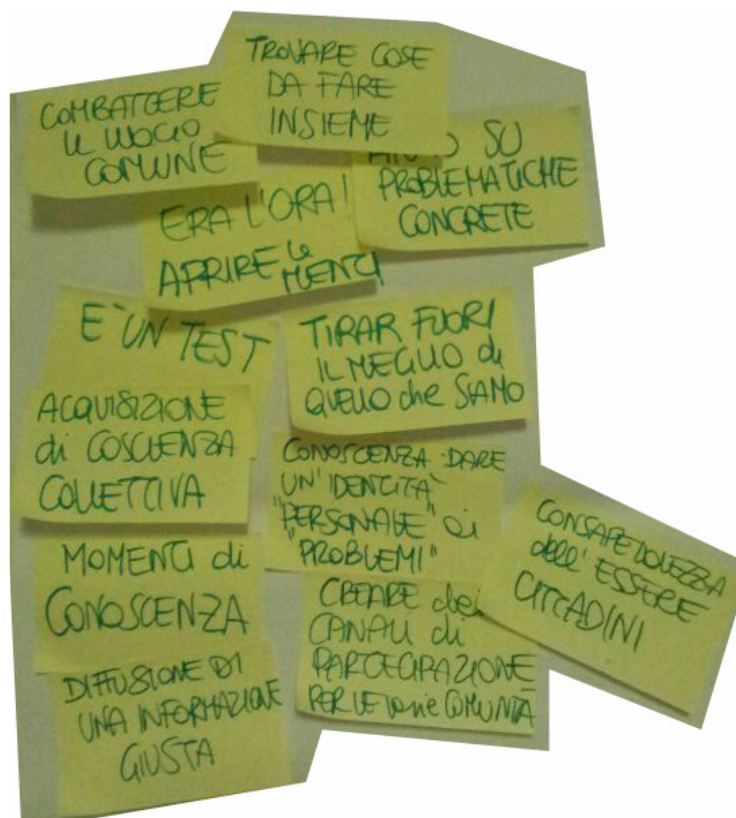 TROVARE COSE
DA FARE
INSIEME
COMBATTERE
IL LUOGO
COMUNE
SU
PROBLEMATICHE
CONCRETE
ERA L'ORA!
APRIRE le
MENTI
E' UN TEST
TIRAR FUORI
IL MEGLIO di
QUELLO che SIAMO
ACQUISIZIONE
di COSCIENZA
COLLETTIVA
CONOSCENZA: DARE
UN'IDENTITÀ
"PERSONALE" ai
"PROBLEMI"
CONSAPEVOLEZZA
dell'ESSERE
CITTADINI
MOMENTI di
CONOSCENZA
CREARE dei
CANALI di
PARTECIPAZIONE
PER LE varie COMUNITÀ
DIFFUSIONE DI
UNA INFORMAZIONE
GIUSTA